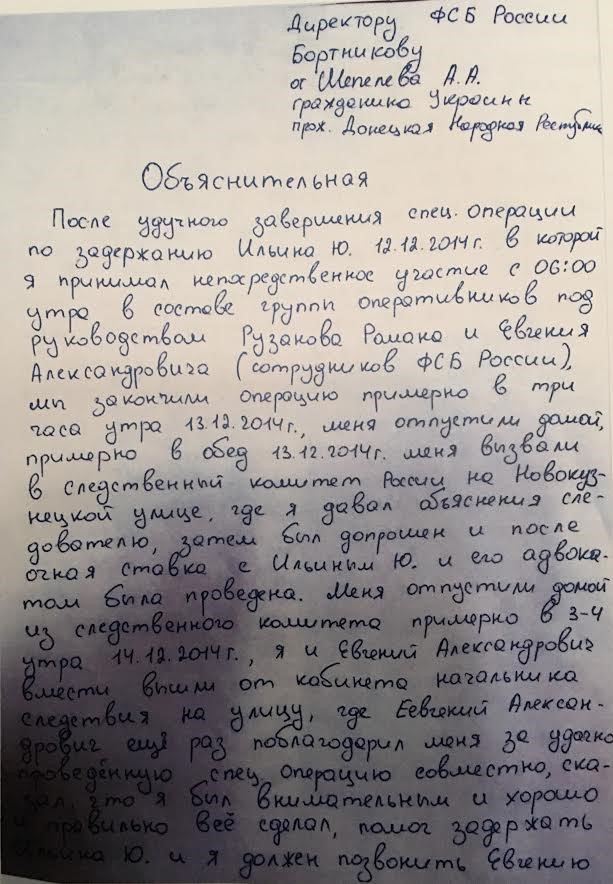 Директору ФСБ России
Бортникову
от Шепелева А.А.
гражданина Украины
прож. Донецкая Народная Республика
Объяснительная
После удучного завершения спец. операции
по задержанию Ильина Ю. 12.12.2014г. в которой
я принимал непосредственное участие с 06:00
утра в составе группы оперативников под
руководством Рузакова Романа и Евгения
Александровича (сотрудников ФСБ России),
мы закончили операцию примерно в три
часа утра 13.12.2014г., меня отпустили домой,
примерно в обед 13.12.2014г. меня вызвали
в следственный комитет России на Новокуз-
нецкой улице, где я давал объяснения сле-
дователю, затем был допрошен и после
очная ставка с Ильиным Ю. и его адвока-
том была проведена. Меня отпустили домой
из следственного комитета примерно в 3-4
утра 14.12.2014г., я и Евгений Александрович
вмести вышли от кабинета начальника
следствия на улицу, где Еевгений Алексан-
дрович ещё раз поблагодарил меня за удачно
проведённую спец. операцию совместно, ска-
зал, что я был внимательным и хорошо
и правильно всё сделал, помог задержать
Ильина Ю. и я должен позвонить Евгению